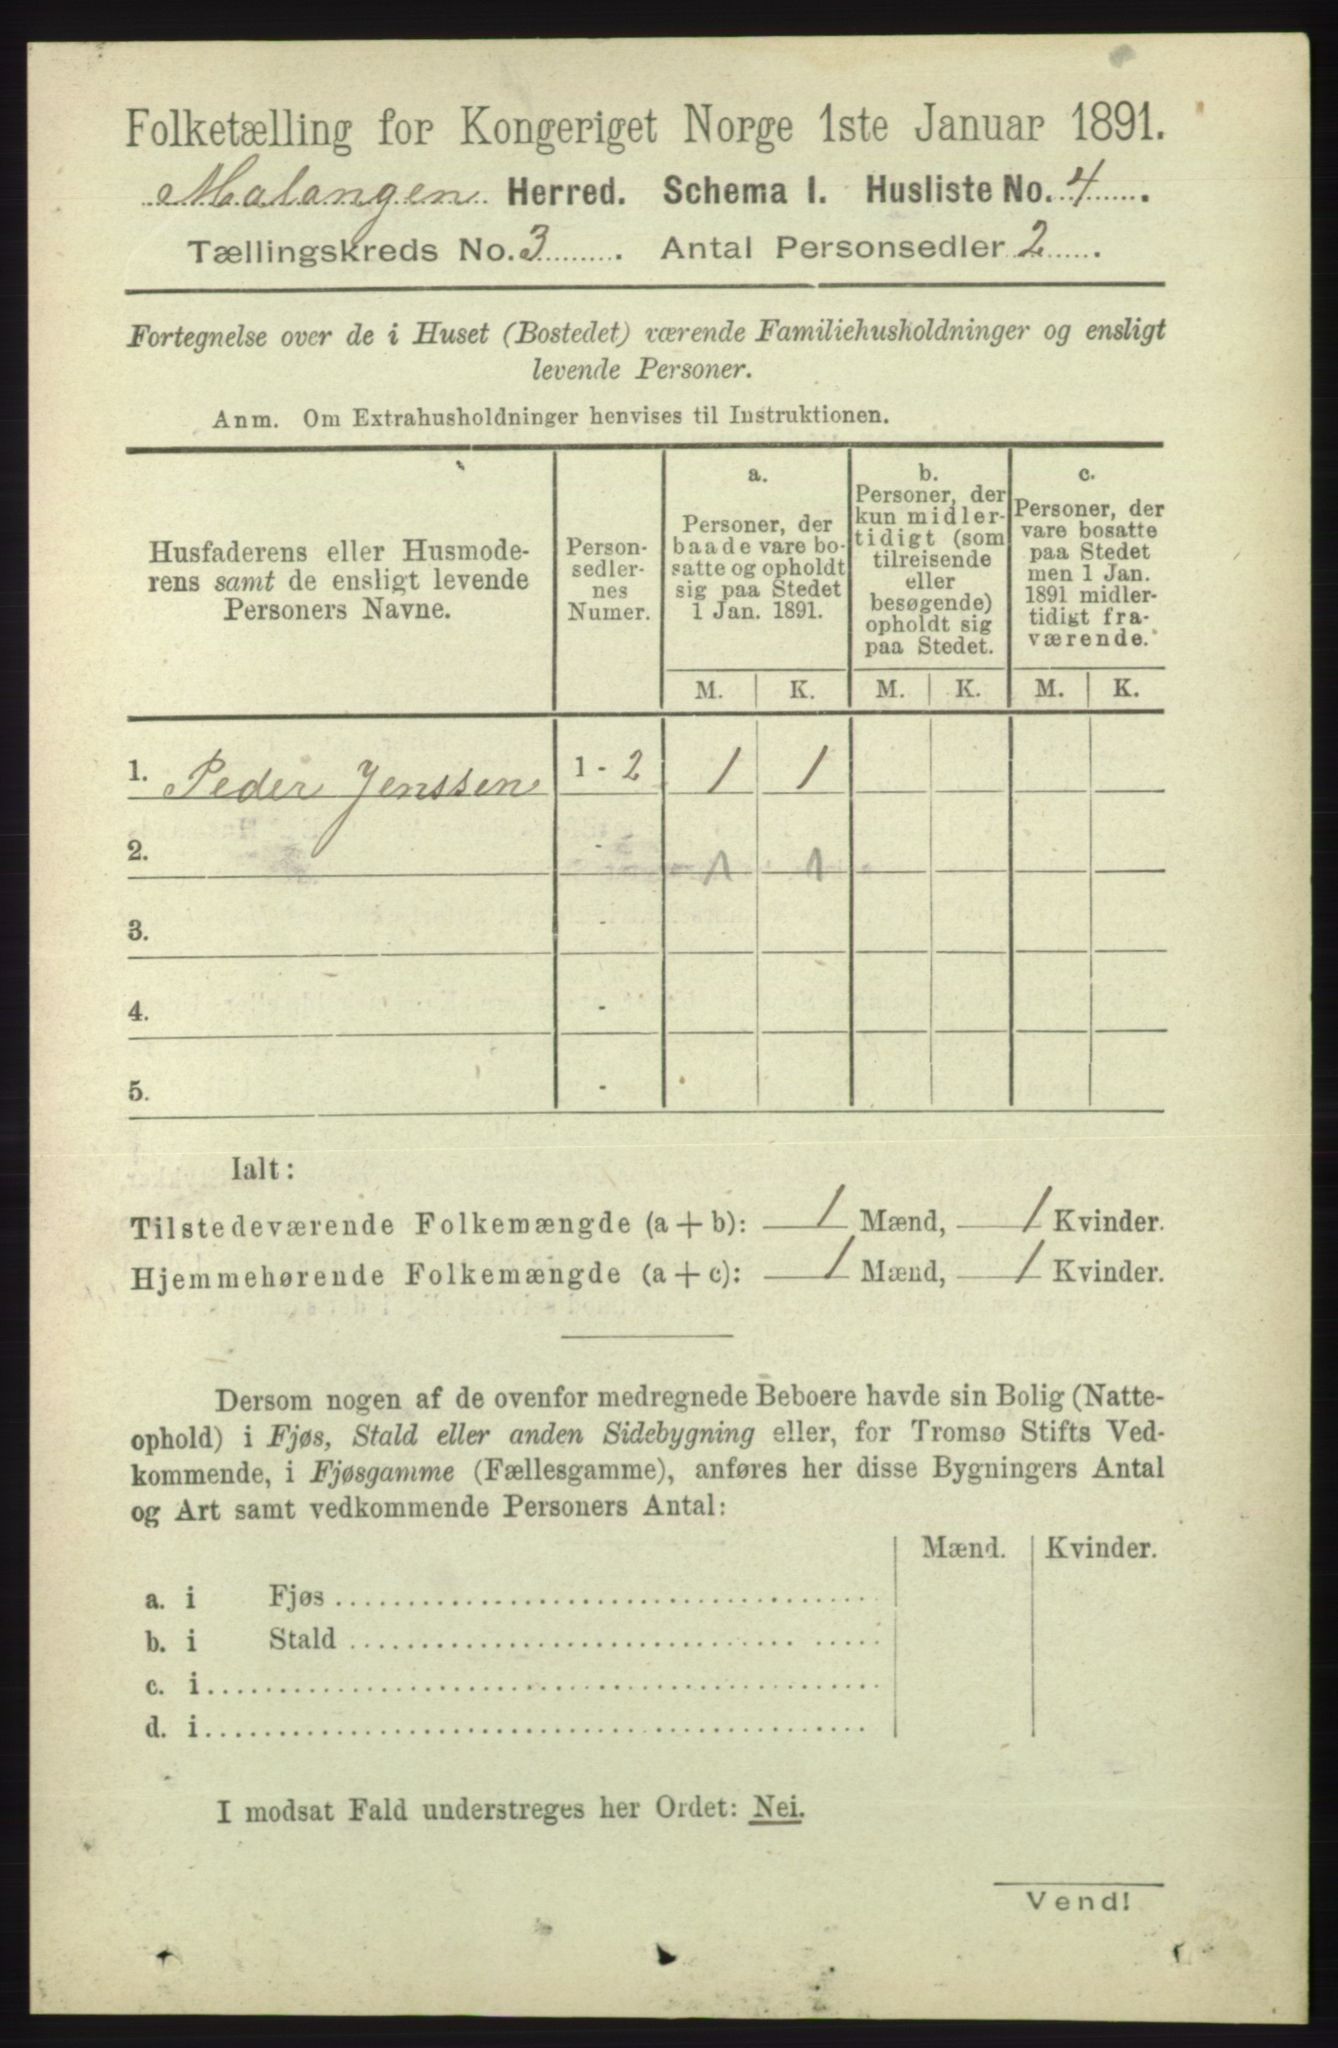 Folketælling for Kongeriget Norge 1ste Januar 1891.
Malangen Herred. Schema I. Husliste No. 4
Tællingskreds No. 3. Antal Personsedler 2.
Fortegnelse over de i Huset (Bostedet) værende Familiehusholdninger og ensligt
levende Personer.
Anm. Om Extrahusholdninger henvises til Instruktionen.
Husfaderens eller Husmode-
rens samt de ensligt levende
Personers Navne.
Person-
sedler-
nes
Numer.
a.
Personer, der
baade vare bo-
satte og opholdt
sig paa Stedet
1 Jan. 1891.
b.
Personer, der
kun midler-
tidigt (som
tilreisende
eller
besøgende)
opholdt sig
paa Stedet.
c.
Personer, der
vare bosatte
paa Stedet
men 1 Jan.
1891 midler-
tidigt fra-
værende.
M. K. M. K. M. K.
1. Peder Jenssen 1 - 2 1 1
2. - 1 1
3. -
4. -
5. -
Ialt:
Tilstedeværende Folkemængde (a + b): 1 Mænd, 1 Kvinder.
Hjemmehørende Folkemængde (a + c): 1 Mænd, 1 Kvinder.
Dersom nogen af de ovenfor medregnede Beboere havde sin Bolig (Natte-
ophold) i Fjøs, Stald eller anden Sidebygning eller, for Tromsø Stifts Ved-
kommende, i Fjøsgamme (Fællesgamme), anføres her disse Bygningers Antal
og Art samt vedkommende Personers Antal:
Mænd. Kvinder.
a. i Fjøs
b. i Stald
c. i
d. i
I modsat Fald understreges her Ordet: Nei.
Vend!